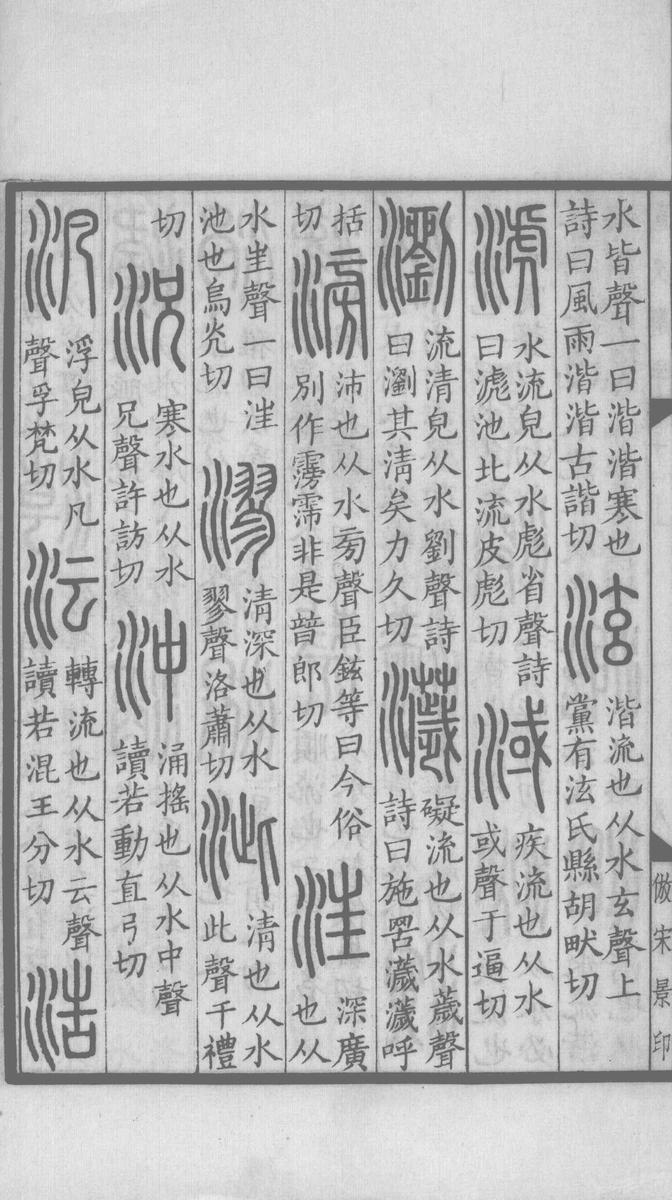 水皆聲一曰湝湝寒也
詩曰風雨湝湝古諧切
泫
湝流也从水玄聲上
黨有泫氏縣胡畎切
淲
水流皃从水彪省聲詩
曰滮池北流皮彪切
淢
疾流也从水
或聲于逼切
瀏
流清皃从水劉聲詩
曰瀏其清矣力久切
濊
礙流也从水薉聲
詩曰施罟濊濊呼
括
切
滂
沛也从水㫄聲臣鉉等曰今俗
別作霶霈非是普郎切
汪
深廣
也从
水㞷聲一曰汪
池也烏光切
漻
清深也从水
翏聲洛蕭切
泚
清也从水
此聲千禮
切
況
寒水也从水
兄聲許訪切
沖
涌搖也从水中聲
讀若動直弓切
汎
浮皃从水凡
聲孚梵切
沄
轉流也从水云聲
讀若混王分切
浩
倣宋景印